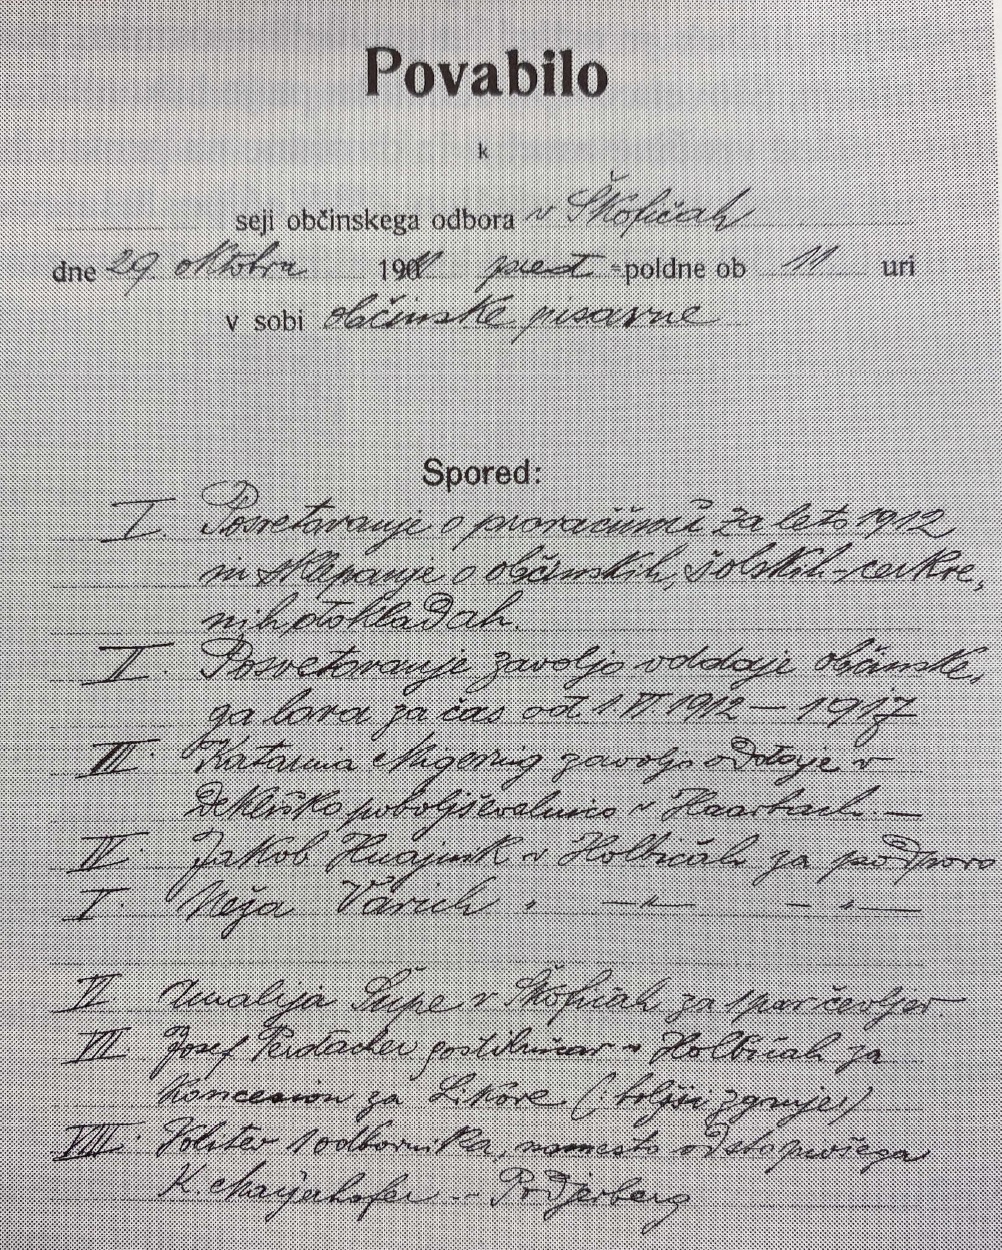 Povabilo
k
seji občinskega odbora v Škofičah
dne 29 oktobra 1911 pred -poldne ob 11 uri
v sobi občinske pisarne
Spored:
I. Posvetovanje o proračunu za leto 1912
in sklepanje o občinskih, šolskih - cerkve,
nih dokladah.
II. Posvetovanje zavoljo oddaje občinske,
ga lova za čas od 1 VI 1912 — 1917
III. Katarina zavoljo oddaje v
dekliško poboljševalnico v Haarbach. —
IV. Jakob v Holbičah za podporo
V. Neža " —"— — " —
VI. Amalija Supe v Škofičah za 1 par čevljev.
VII. Josef Perdacher gostilničar v Holbičah za
koncesion za Liköre (: boljši žganje :)
VIII. Volitev 1 odbornika, namesto odstopivšega
K. Maijerhofer - Podjerberg